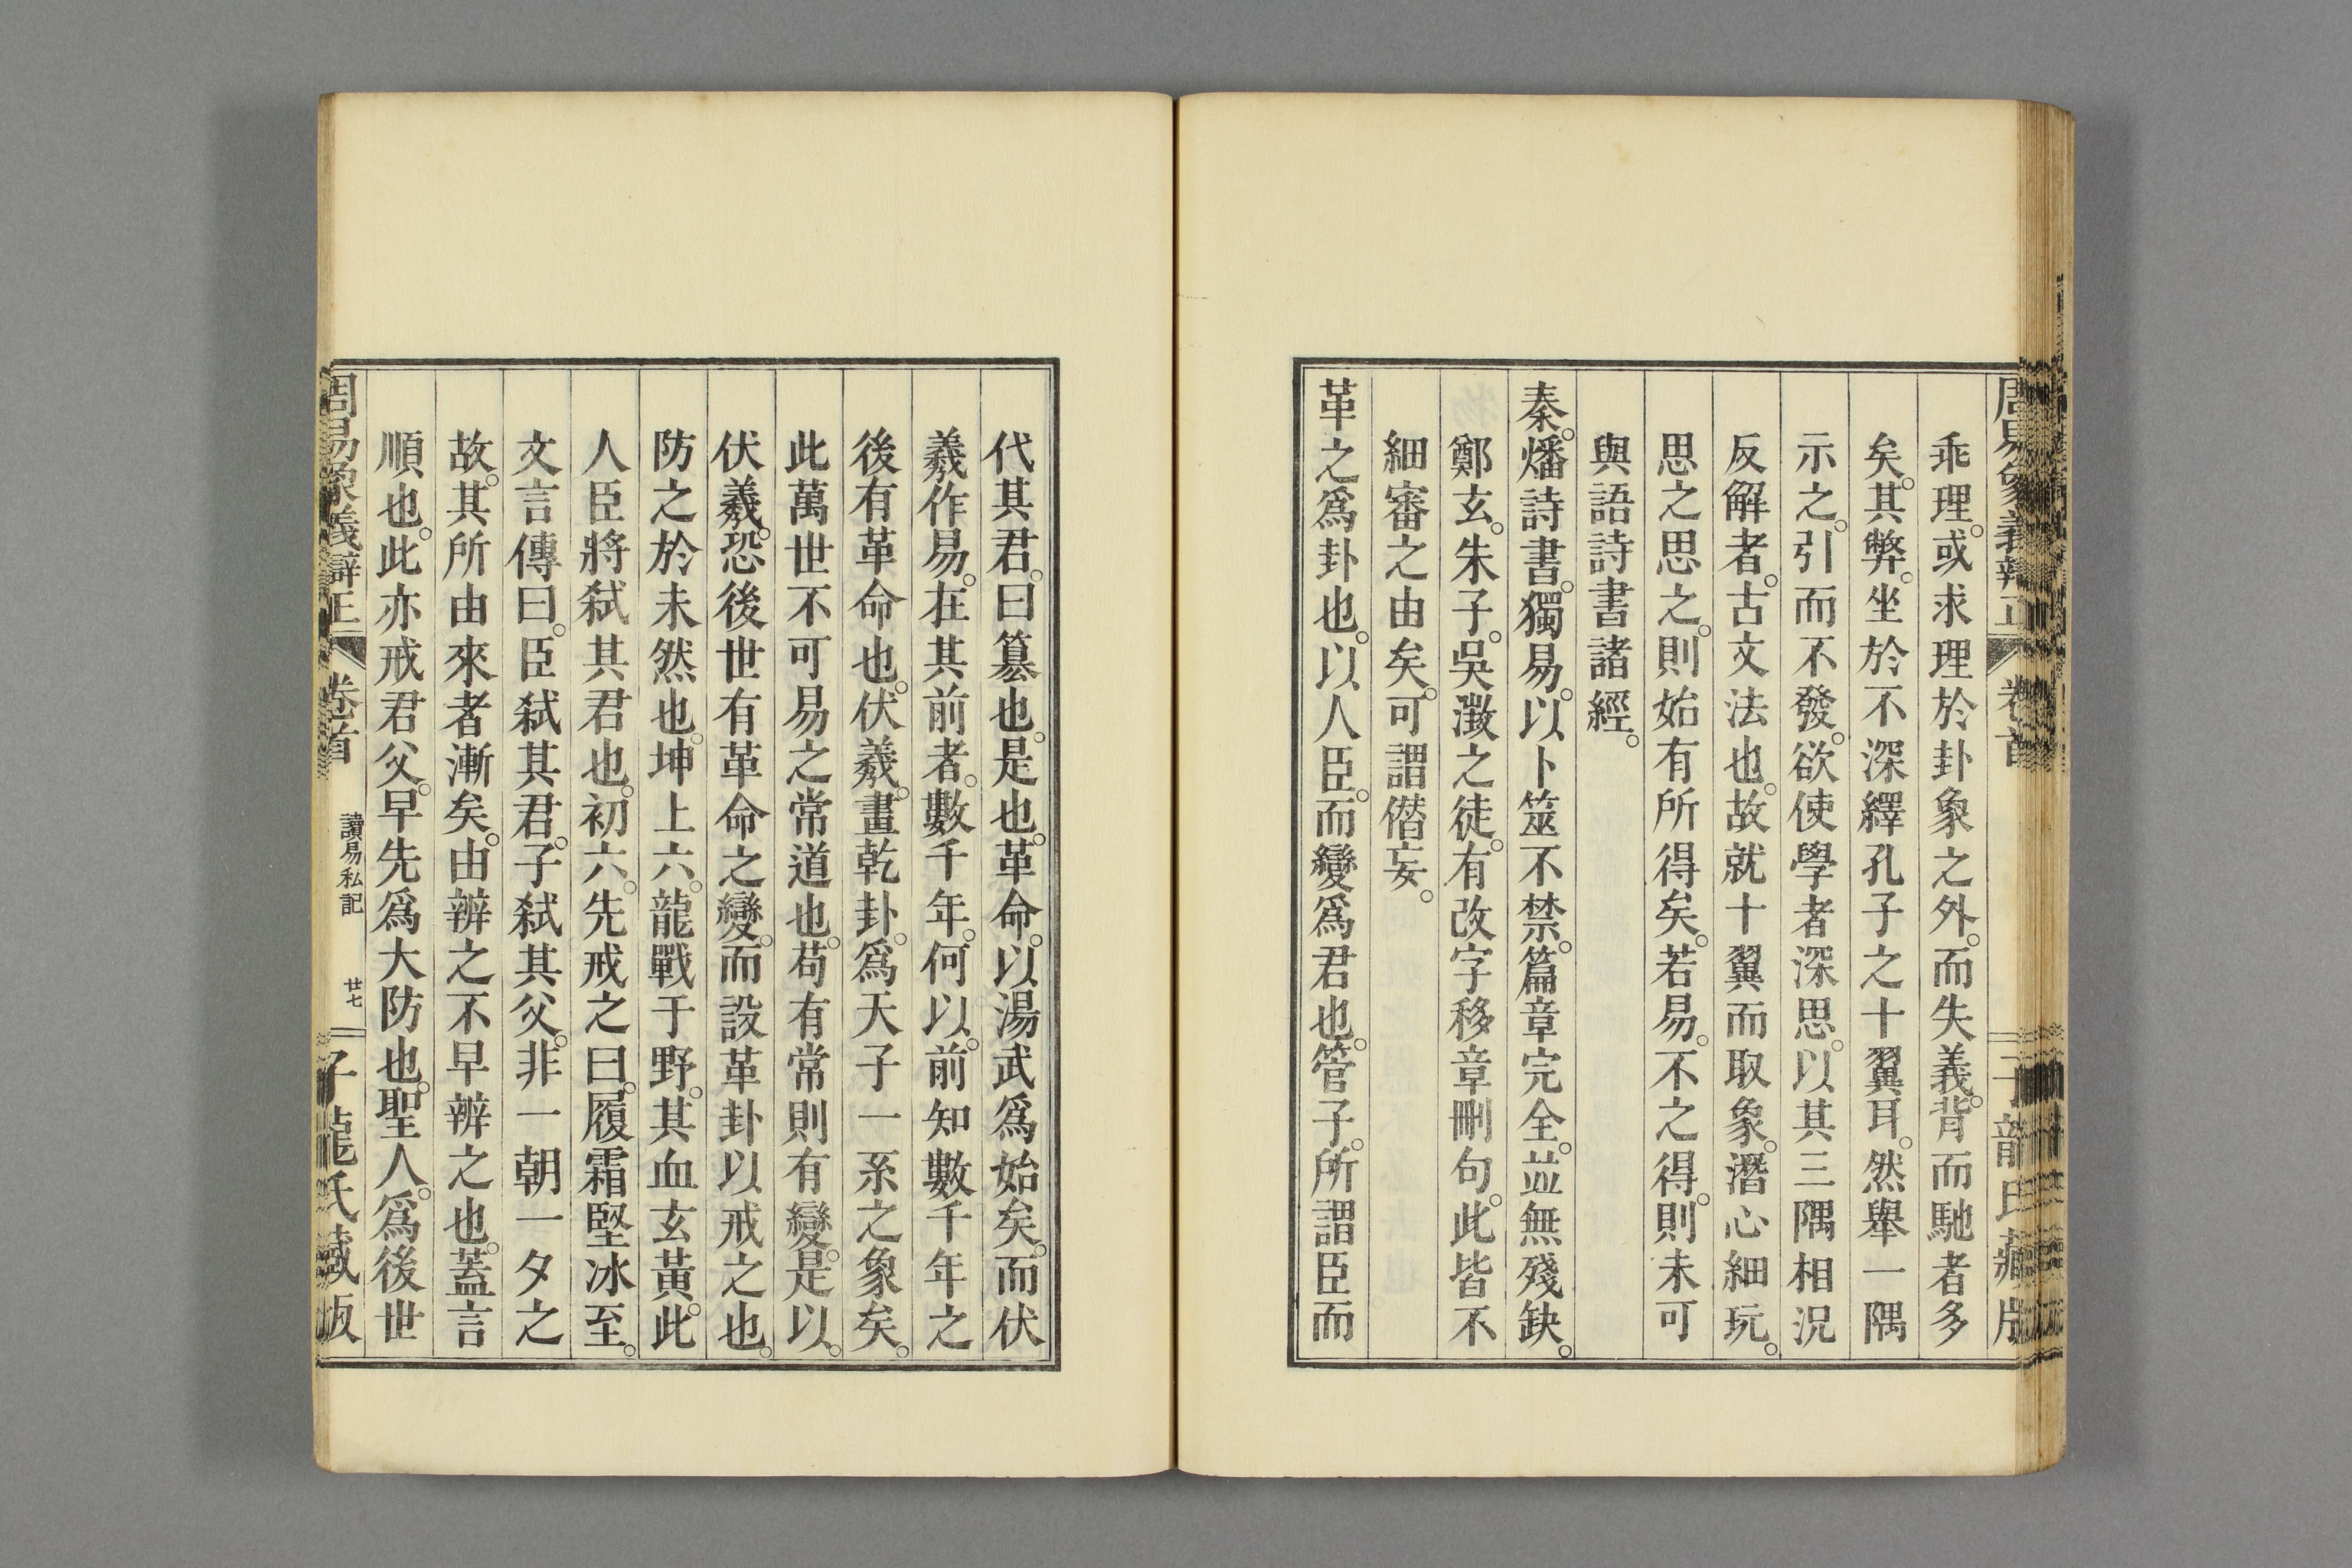 周易象義辯正 卷首 子龍氏藏版
乖理。或求理於卦象之外。而失義。背而馳者多
矣。其弊。坐於不深繹孔子之十翼耳。然舉一隅
示之。引而不發。欲使學者深思。以其三隅相況
反解者。古文法也。故就十翼而取象。潛心細玩。
思之思之。則始有所得矣。若易。不之得。則未可
與語詩書諸經。
秦。燔詩書。獨易。以卜筮不禁。篇章完全。並無殘缺。
鄭玄。朱子。吳澂之徒。有改字移章刪句。此皆不
細審之由矣。可謂僭妄。
革之爲卦也。以人臣。而變爲君也。管子。所謂臣而
代其君。曰篡也。是也。革命。以湯武爲始矣。而伏
羲作易。在其前者。數千年。何以。前知數千年之
後有革命也。伏羲。畫乾卦。爲天子一系之象矣。
此萬世不可易之常道也。苟有常則有變。是以。
伏羲。恐後世有革命之變。而設革卦以戒之也。
防之於未然也。坤上六。龍戰于野。其血玄黃。此
人臣將弑其君也。初六。先戒之曰。履霜堅冰至。
文言傳曰。臣弑其君。子弑其父。非一朝一夕之
故。其所由來者漸矣。由辨之不早辨之也。蓋言
順也。此亦戒君父。早先爲大防也。聖人。爲後世
周易象義辯正 卷首 讀易私記 廿七 子龍氏藏版